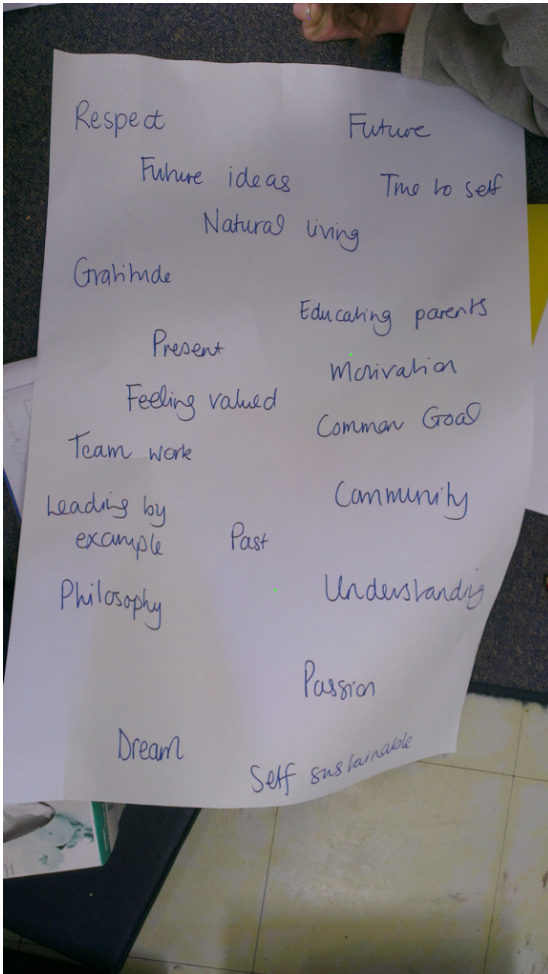 Respect
Future
Future ideas
True to self
Natural living
Gratitude
Educating parents
Present
Motivation
Feeling valued
Common Goal
Team work
Leading by
example
Community
Past
Philosophy
Understanding
Passion
Dream
Self sustainable